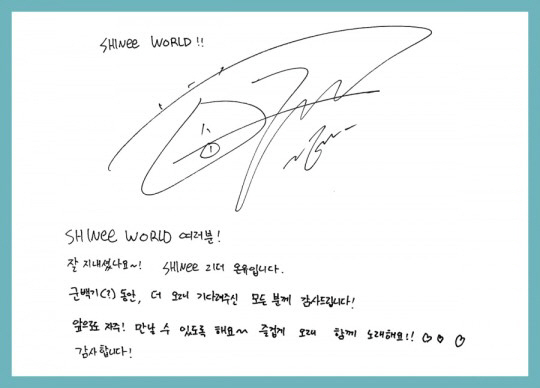 SHINee WORLD !!
SHINee WORLD 여러분!
잘 지내셨나요~! SHINee 리더 온유입니다.
군백기(?) 동안, 더 오래 기다려주신 모든 분께 감사드립니다!
앞으로도 자주! 만날 수 있도록 해요~ 즐겁게 오래 함께 노래해요!! ♡ ♡ ♡
감사합니다!